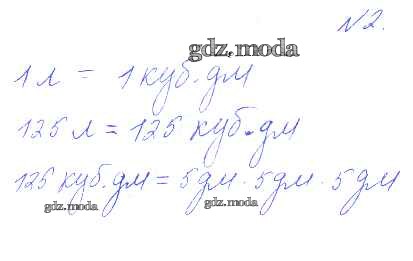 №2.
gdz.moda
1 л = 1 куб. дм
125 л = 125 куб. дм
125 куб. дм = 5 дм · 5 дм · 5 дм
gdz.moda gdz.moda